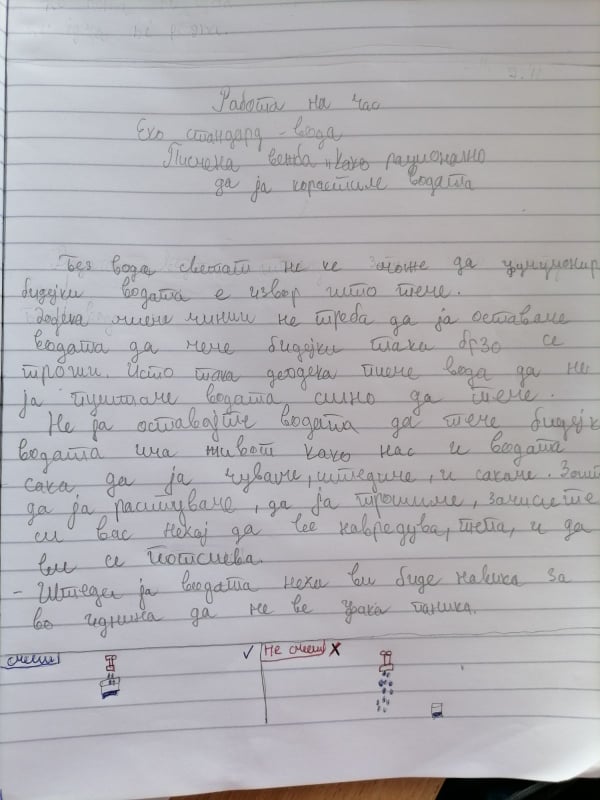 9.11
Работа на час
Еко стандард - вода
Писмена вежба „Како рационално
да ја корастиме водата
Без вода светат не ке може да функционир
бидејки водата е извор што тече.
Додека миеме чинии не треба да ја оставаме
водата да тече бидејки така брзо се
троши. Исто така додека пиеме вода да не
ја пуштаме водата силно да тече.
Не ја оставајте водата да тече бидејќ
водата има живот како нас и водата
сака да ја чуваме, штедиме, и сакаме. Зошт
да ја растуваме, да ја трошиме, замислете
си вас некој да ве навредува, тепа, и да
ви се потсмева.
- Штедеј ја водата нека ви биде навика за
во иднина да не ве фака паника.
смееш ✓ Не смееш X